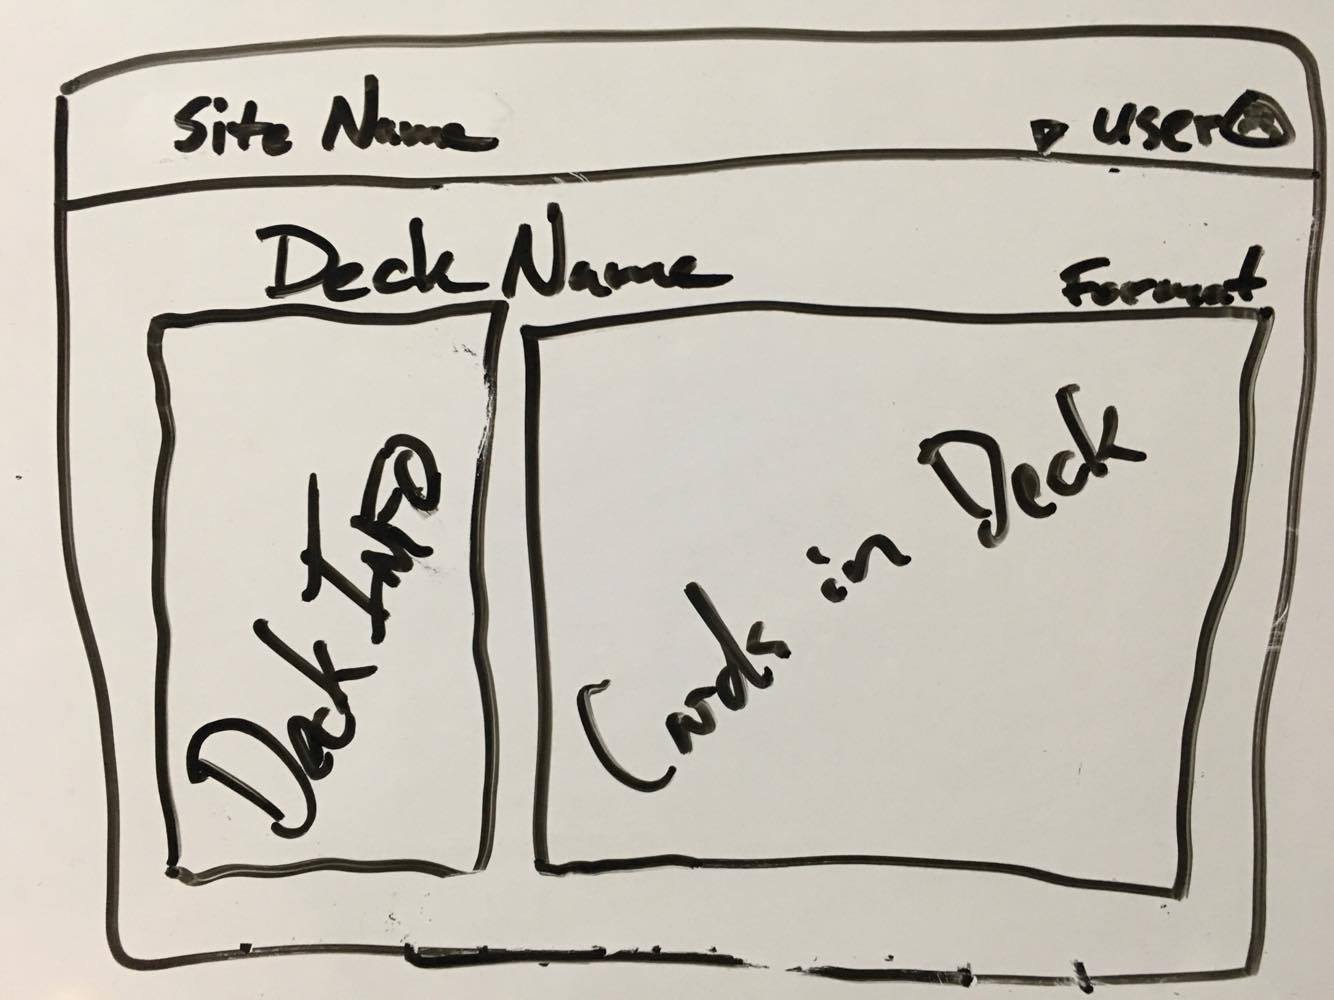 Site Name
user
Deck Name
Format
Deck Info
Cards in Deck